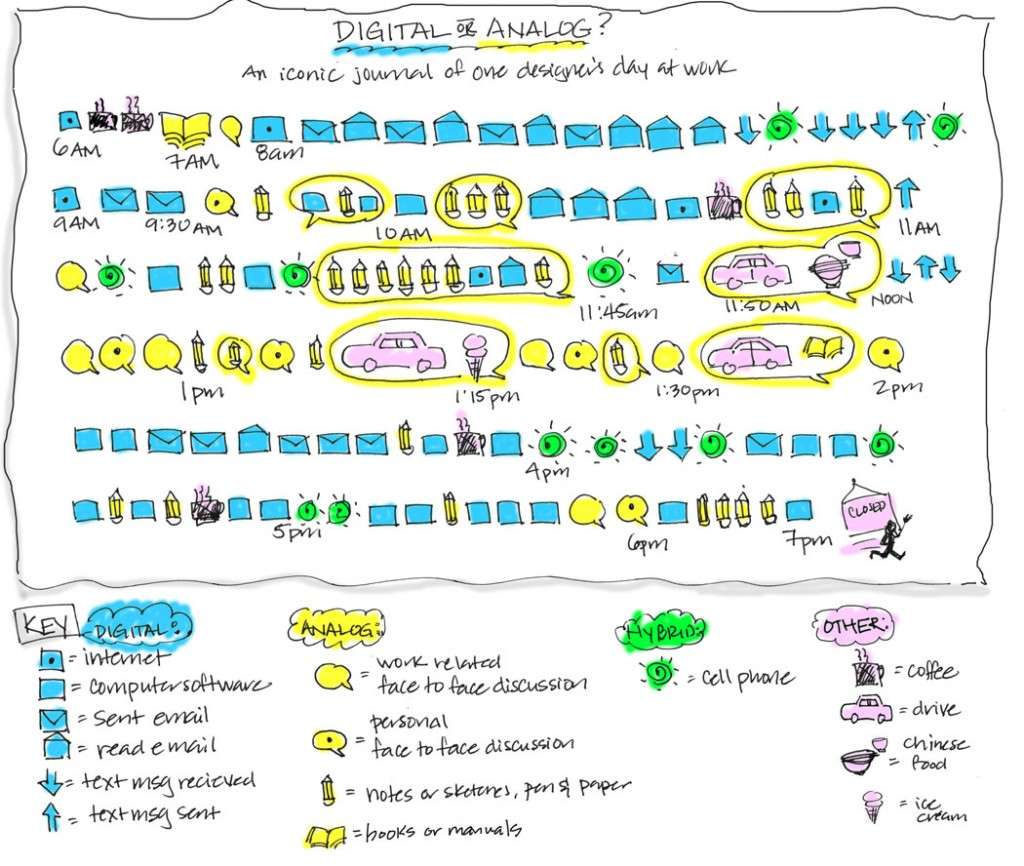 DIGITAL OR ANALOG?
An iconic journal of one designer's day at work
6AM 7AM 8am
9AM 9:30AM 10AM 11AM
11:45am 11:50AM NOON
1pm 1:15pm 1:30pm 2pm
4pm
CLOSED
5pm 6pm 7pm
KEY
DIGITAL:
= internet
= computer software
= sent email
= read email
= text msg recieved
= text msg sent
ANALOG:
= work related
face to face discussion
= personal
face to face discussion
= notes or sketches, pen & paper
= books or manuals
HYBRID:
= cell phone
OTHER:
= coffee
= drive
= chinese
food
= ice
cream